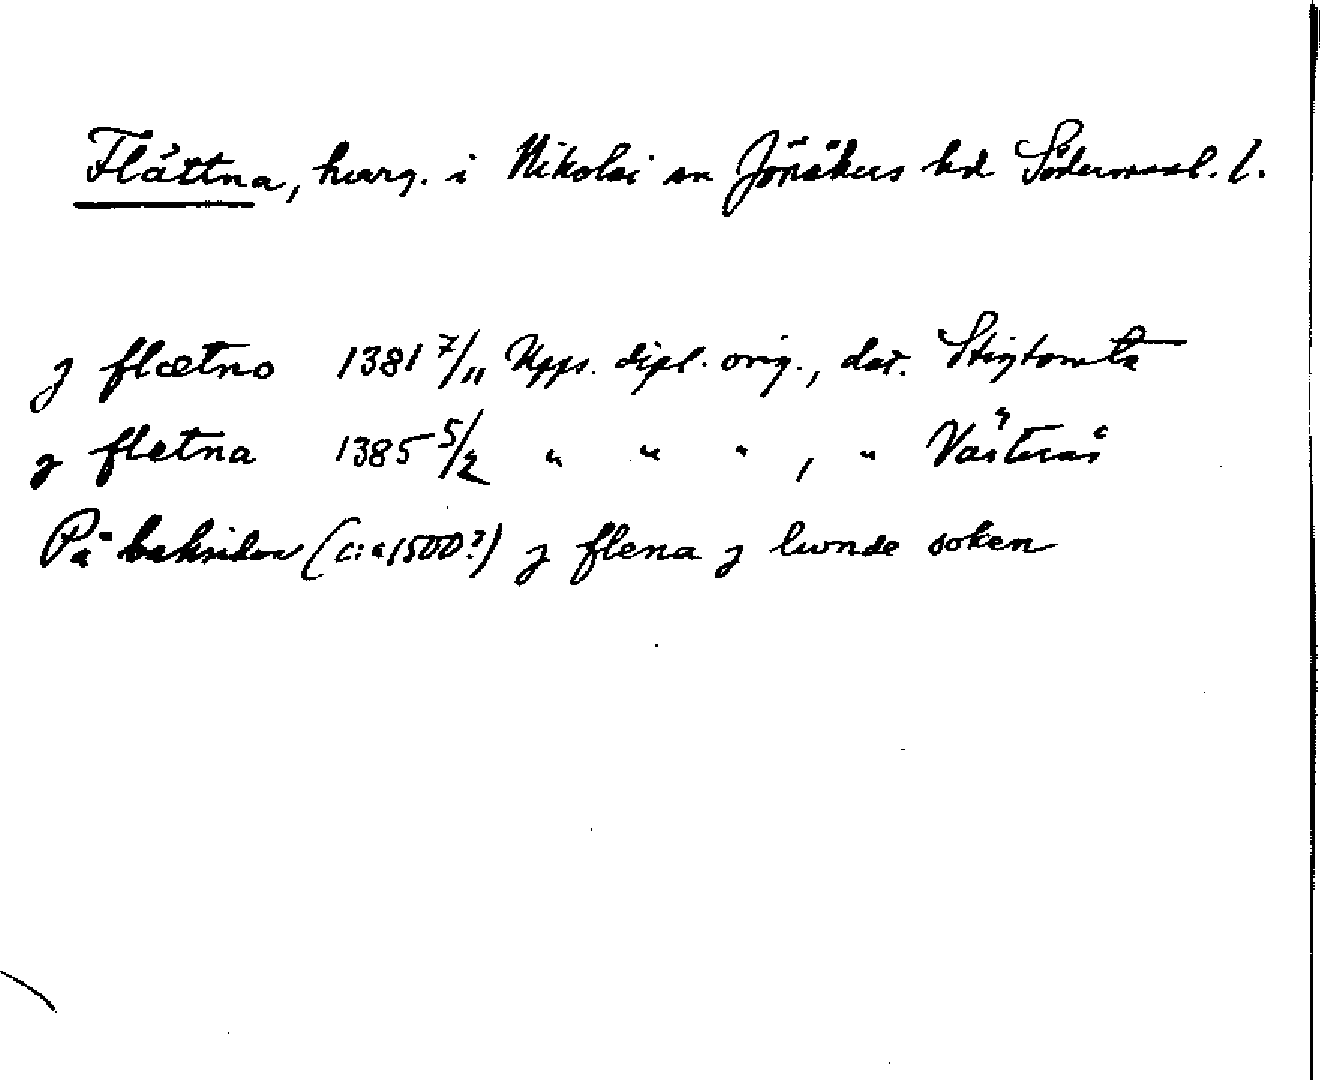 Flättna, herrg. i Nikolai sn Jönåkers hd Södermanl. l.
j flætno 1381 7/11 Upps. dipl. orig., dat. Stigtomta
j fletna 1385 5/2 " " " , " Västerås
På baksidan (c:a 1500?) j flena j lwnde soken